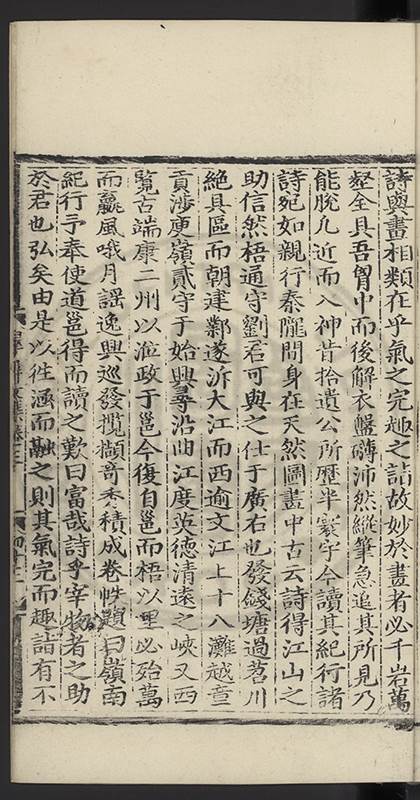 詩與畫相類在乎氣之完趣之詣故妙於畫者必千岩萬
壑全具吾胷中而後解衣盤礴沛然縱筆急追其所見乃
能脫凡近而入神昔拾遺公所歷半寰宇今讀其紀行諸
詩宛如親行秦隴間身在天然圖畫中古云詩得江山之
助信然梧通守劉君可與之仕于廣右也發錢塘過苕川
絶具區而朝建鄴遂泝大江而西逾文江上十八灘越章
貢涉庾嶺貳守于始興尋沿曲江度英德清遠之峽又西
覽古端康二州以涖政于邕今復自邕而梧以里必殆萬
而飄風哦月謡逸興巡發攬擷竒秀積成卷帙題曰嶺南
紀行予奉使道邕得而讀之歎曰富哉詩乎宰物者之助
於君也弘矣由是以徃涵而融之則其氣完而趣詣有不